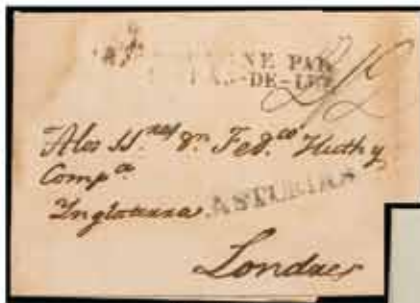 NE PAR
-DE-LUZ
Alos SS.res Dn Fed.co Huth y
Comp.a
Inglaterra.
ASTURIAS
Londres